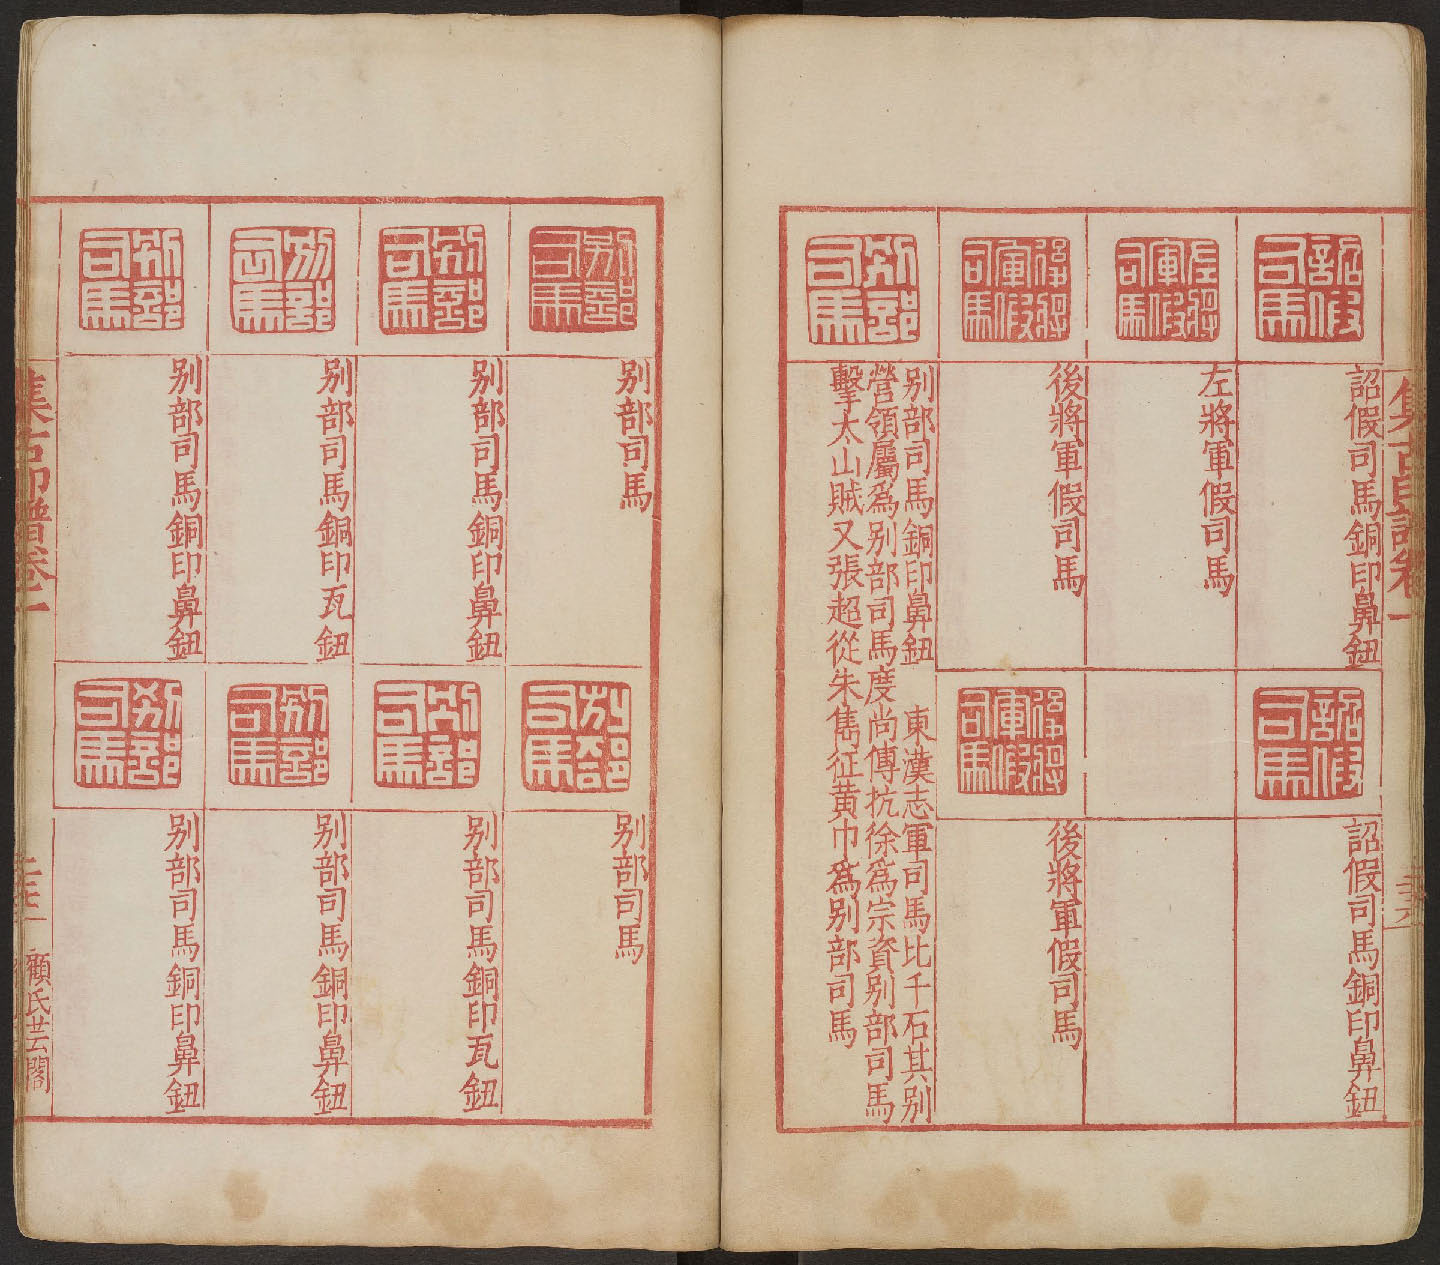 詔假司馬
詔假司馬銅印鼻鈕
詔假司馬
詔假司馬銅印鼻鈕
左將軍假司馬
左將軍假司馬
後將軍假司馬
後將軍假司馬
後將軍假司馬
後將軍假司馬
別部司馬
别部司馬銅印鼻鈕 東漢志軍司馬比千石其别
營領屬為别部司馬度尚傳抗徐為宗資别部司馬
擊太山賊又張超從朱雋征黄巾為别部司馬
集古印譜卷一
別部司馬
别部司馬
別部司馬
别部司馬
別部司馬
别部司馬銅印鼻鈕
別部司馬
别部司馬銅印瓦鈕
別部司馬
别部司馬銅印瓦鈕
別部司馬
别部司馬銅印鼻鈕
別部司馬
别部司馬銅印鼻鈕
別部司馬
别部司馬銅印鼻鈕
集古印譜卷一
顧氏芸閣